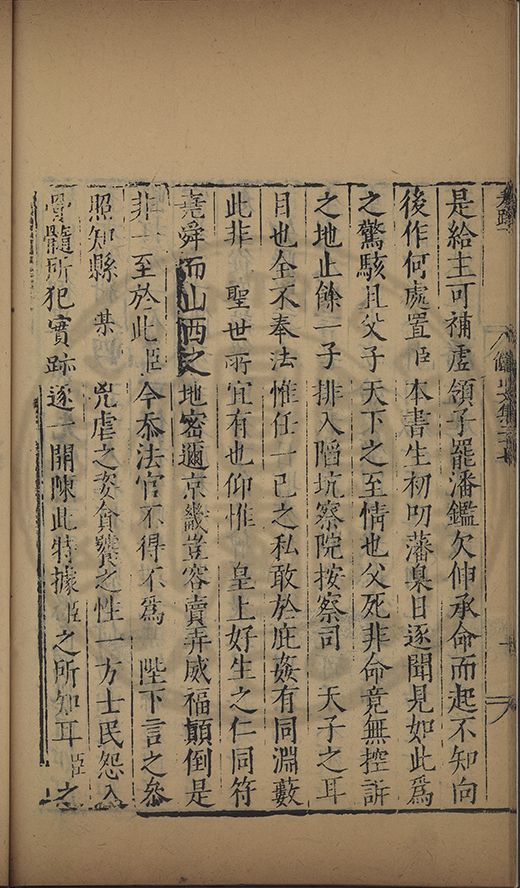 是給主可補虛領子罷潘鑑欠伸承命而起不知向
後作何處置臣本書生初叨藩臬日逐聞見如此為
之驚駭且父子天下之至情也父死非命竟無控訴
之地止餘一子排入陷坑察院按察司　天子之耳
目也全不奉法惟任一己之私敢於庇姦有同淵藪
此非　聖世所宜有也仰惟　皇上好生之仁同符
堯舜而山西之地密邇京畿豈容賣弄威福顛倒是
非一至於此臣今忝法官不得不為　陛下言之叅
照知縣某　兇虐之姿貪饕之性一方士民怨入
骨髓所犯實跡逐一開陳此特據臣之所知耳臣之